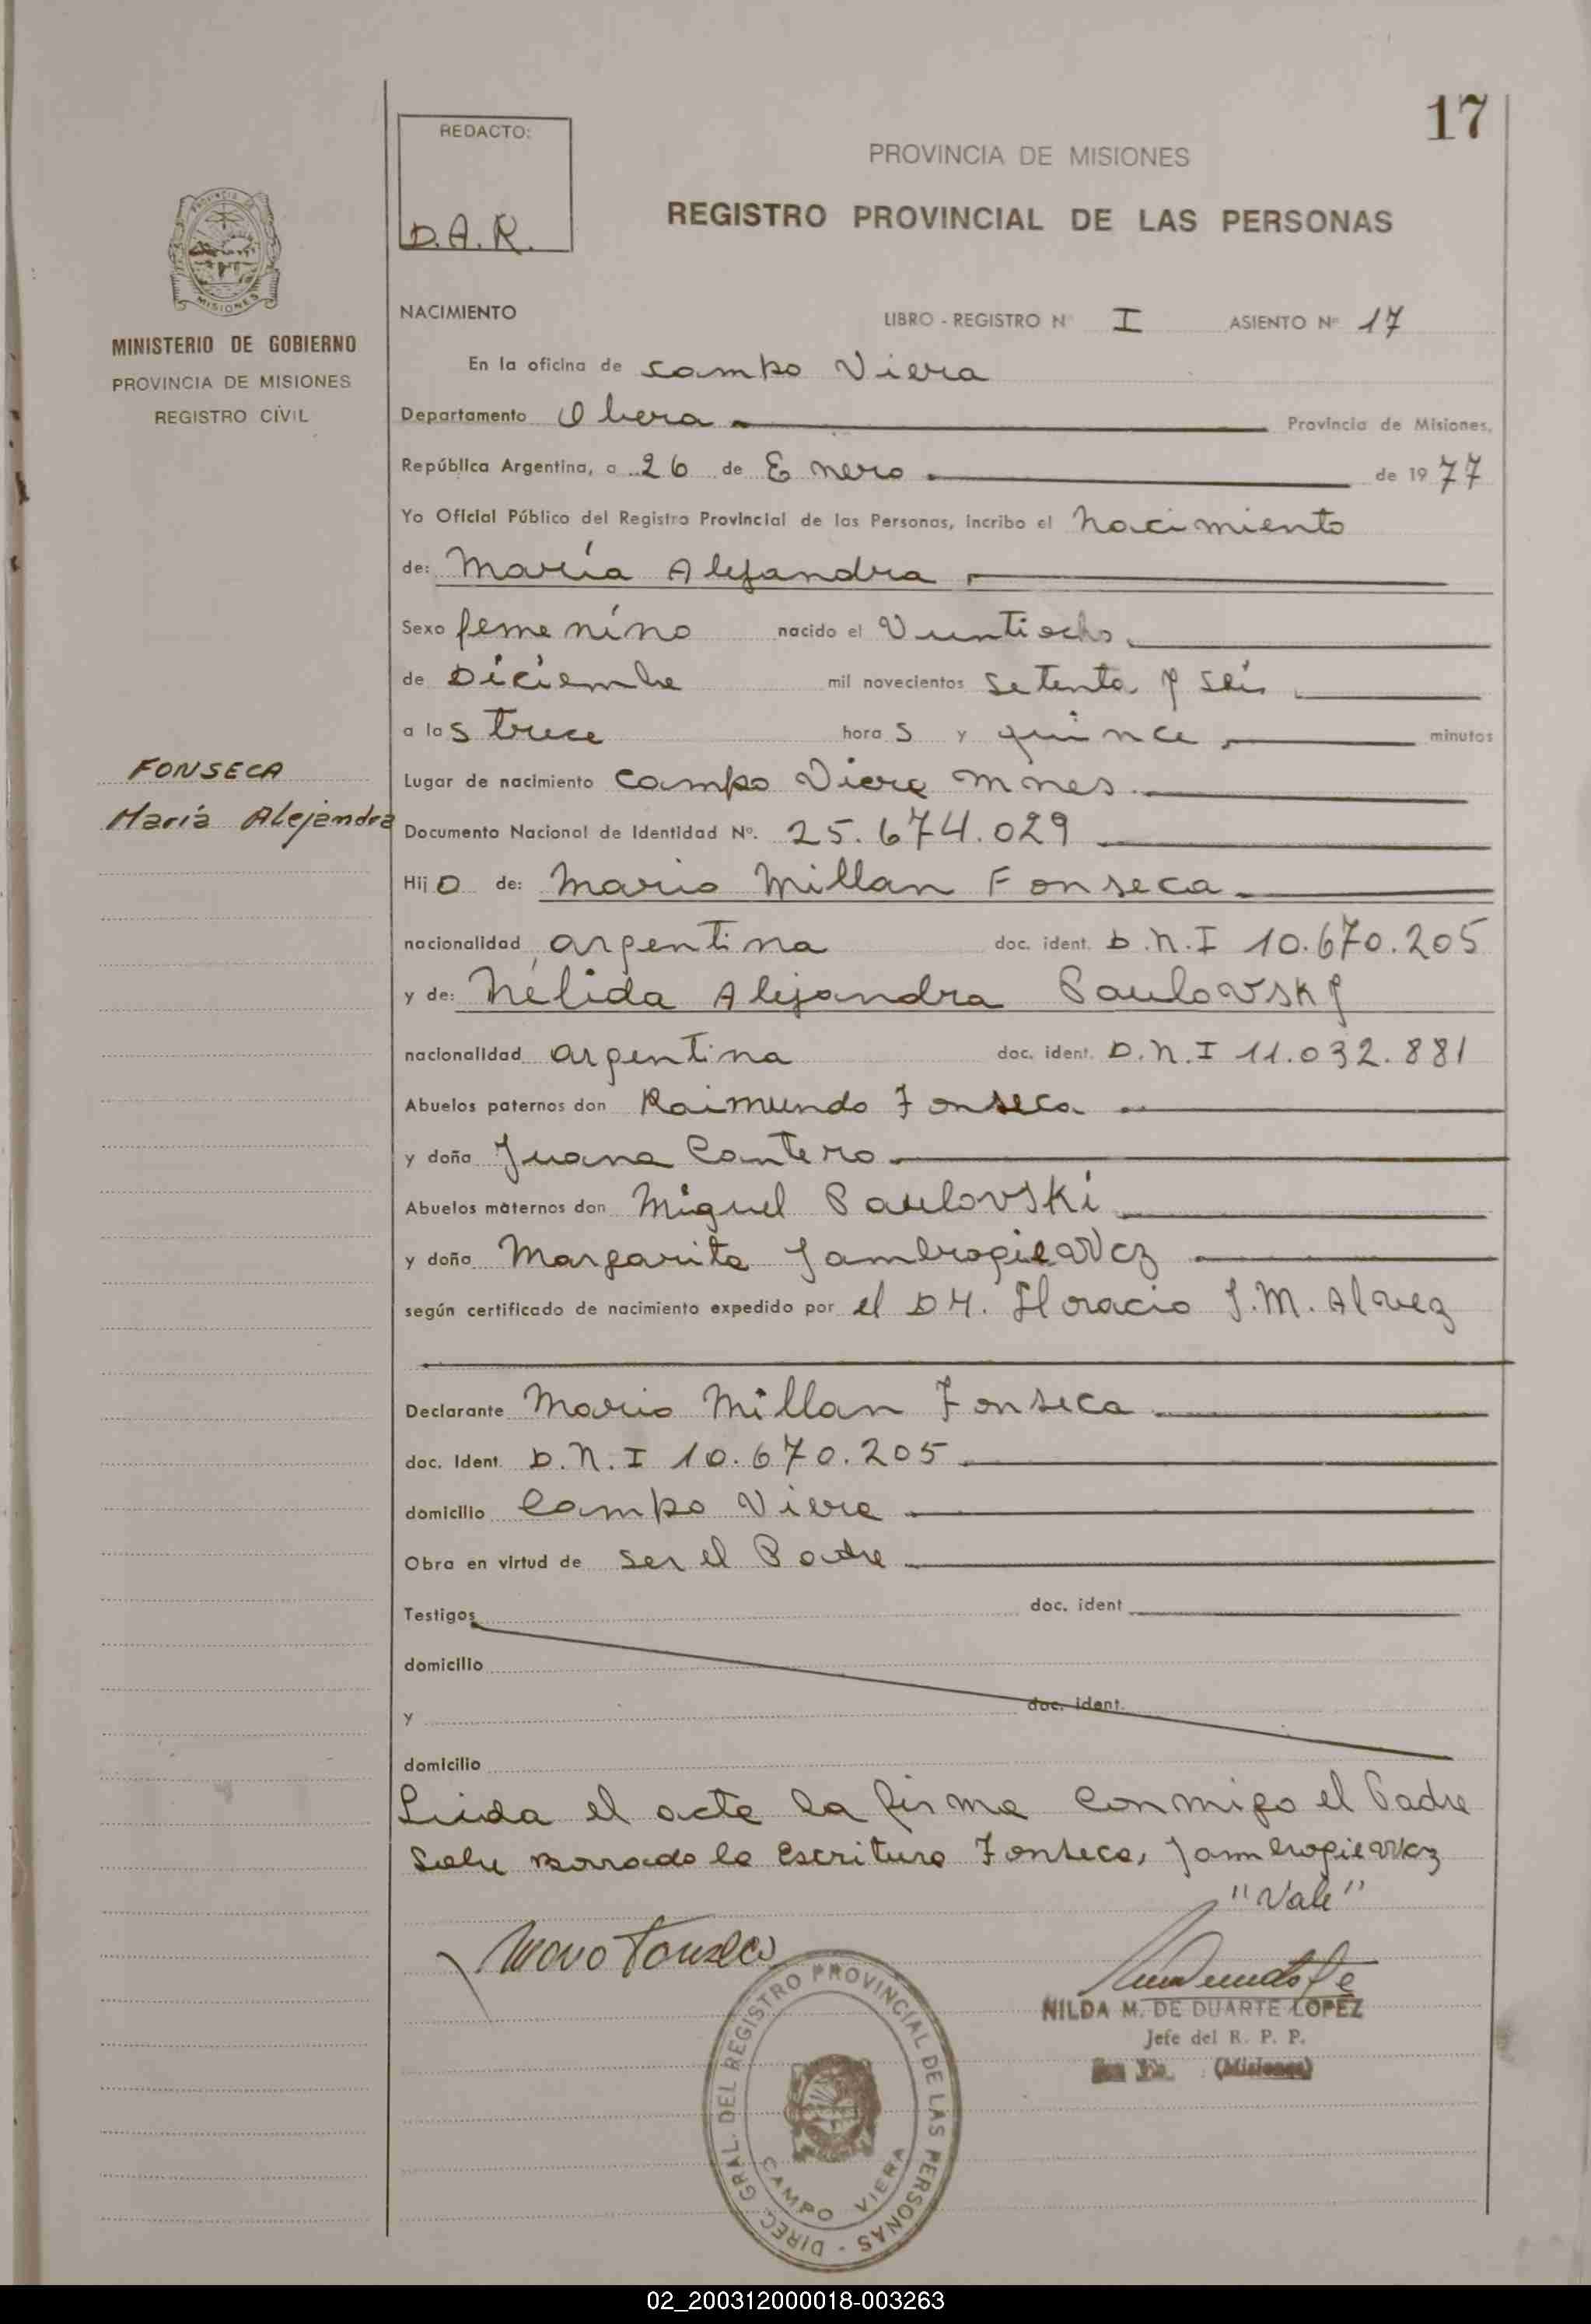 17
REDACTO:
D.A.R.
PROVINCIA DE MISIONES
REGISTRO PROVINCIAL DE LAS PERSONAS
PROVINCIA DE
MISIONES
MINISTERIO DE GOBIERNO
PROVINCIA DE MISIONES
REGISTRO CIVIL
NACIMIENTO LIBRO - REGISTRO Nº I ASIENTO Nº 17
En la oficina de Campo Viera
Departamento Obera Provincia de Misiones,
República Argentina, a 26 de Enero de 1977
Yo Oficial Público del Registro Provincial de las Personas, incribo el nacimiento
de: María Alejandra
Sexo femenino nacido el Veintiocho
de Diciembre mil novecientos setenta y seis
a las trece horas y quince minutos
FONSECA
María Alejandra
Lugar de nacimiento Campo Viera Mnes.
Documento Nacional de Identidad Nº. 25.674.029
Hijo de: Mario Millan Fonseca
nacionalidad argentina doc. ident. D.N.I 10.670.205
y de: Nélida Alejandra Paulovsky
nacionalidad argentina doc. ident. D.N.I 11.032.881
Abuelos paternos don Raimundo Fonseca
y doña Juana Cantero
Abuelos maternos don Miguel Paulovski
y doña Margarita Jambrogiewicz
según certificado de nacimiento expedido por el DR. Horacio J.M. Alvez
Declarante Mario Millan Fonseca
doc. Ident. D.N.I 10.670.205
domicilio Campo Viera
Obra en virtud de ser el Padre
Testigos doc. ident
domicilio
y doc. ident.
domicilio
Leida el acta la firma conmigo el Padre
Sobre Borrado la escritura Fonseca, Jambrogiewicz
"Vale"
Mario Fonseca
NILDA M. DE DUARTE LOPEZ
Jefe del R. P. P.
(Misiones)
DIREC. GRAL. DEL REGISTRO PROVINCIAL DE LAS PERSONAS -
CAMPO VIERA
02_200312000018-003263